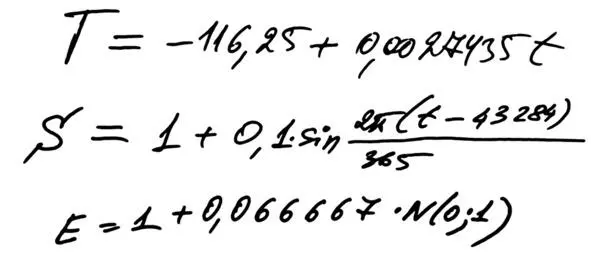 T = -116,25 + 0,0027435 t
S = 1 + 0,1·sin 2π(t - 43284) / 365
E = 1 + 0,066667 · N(0;1)